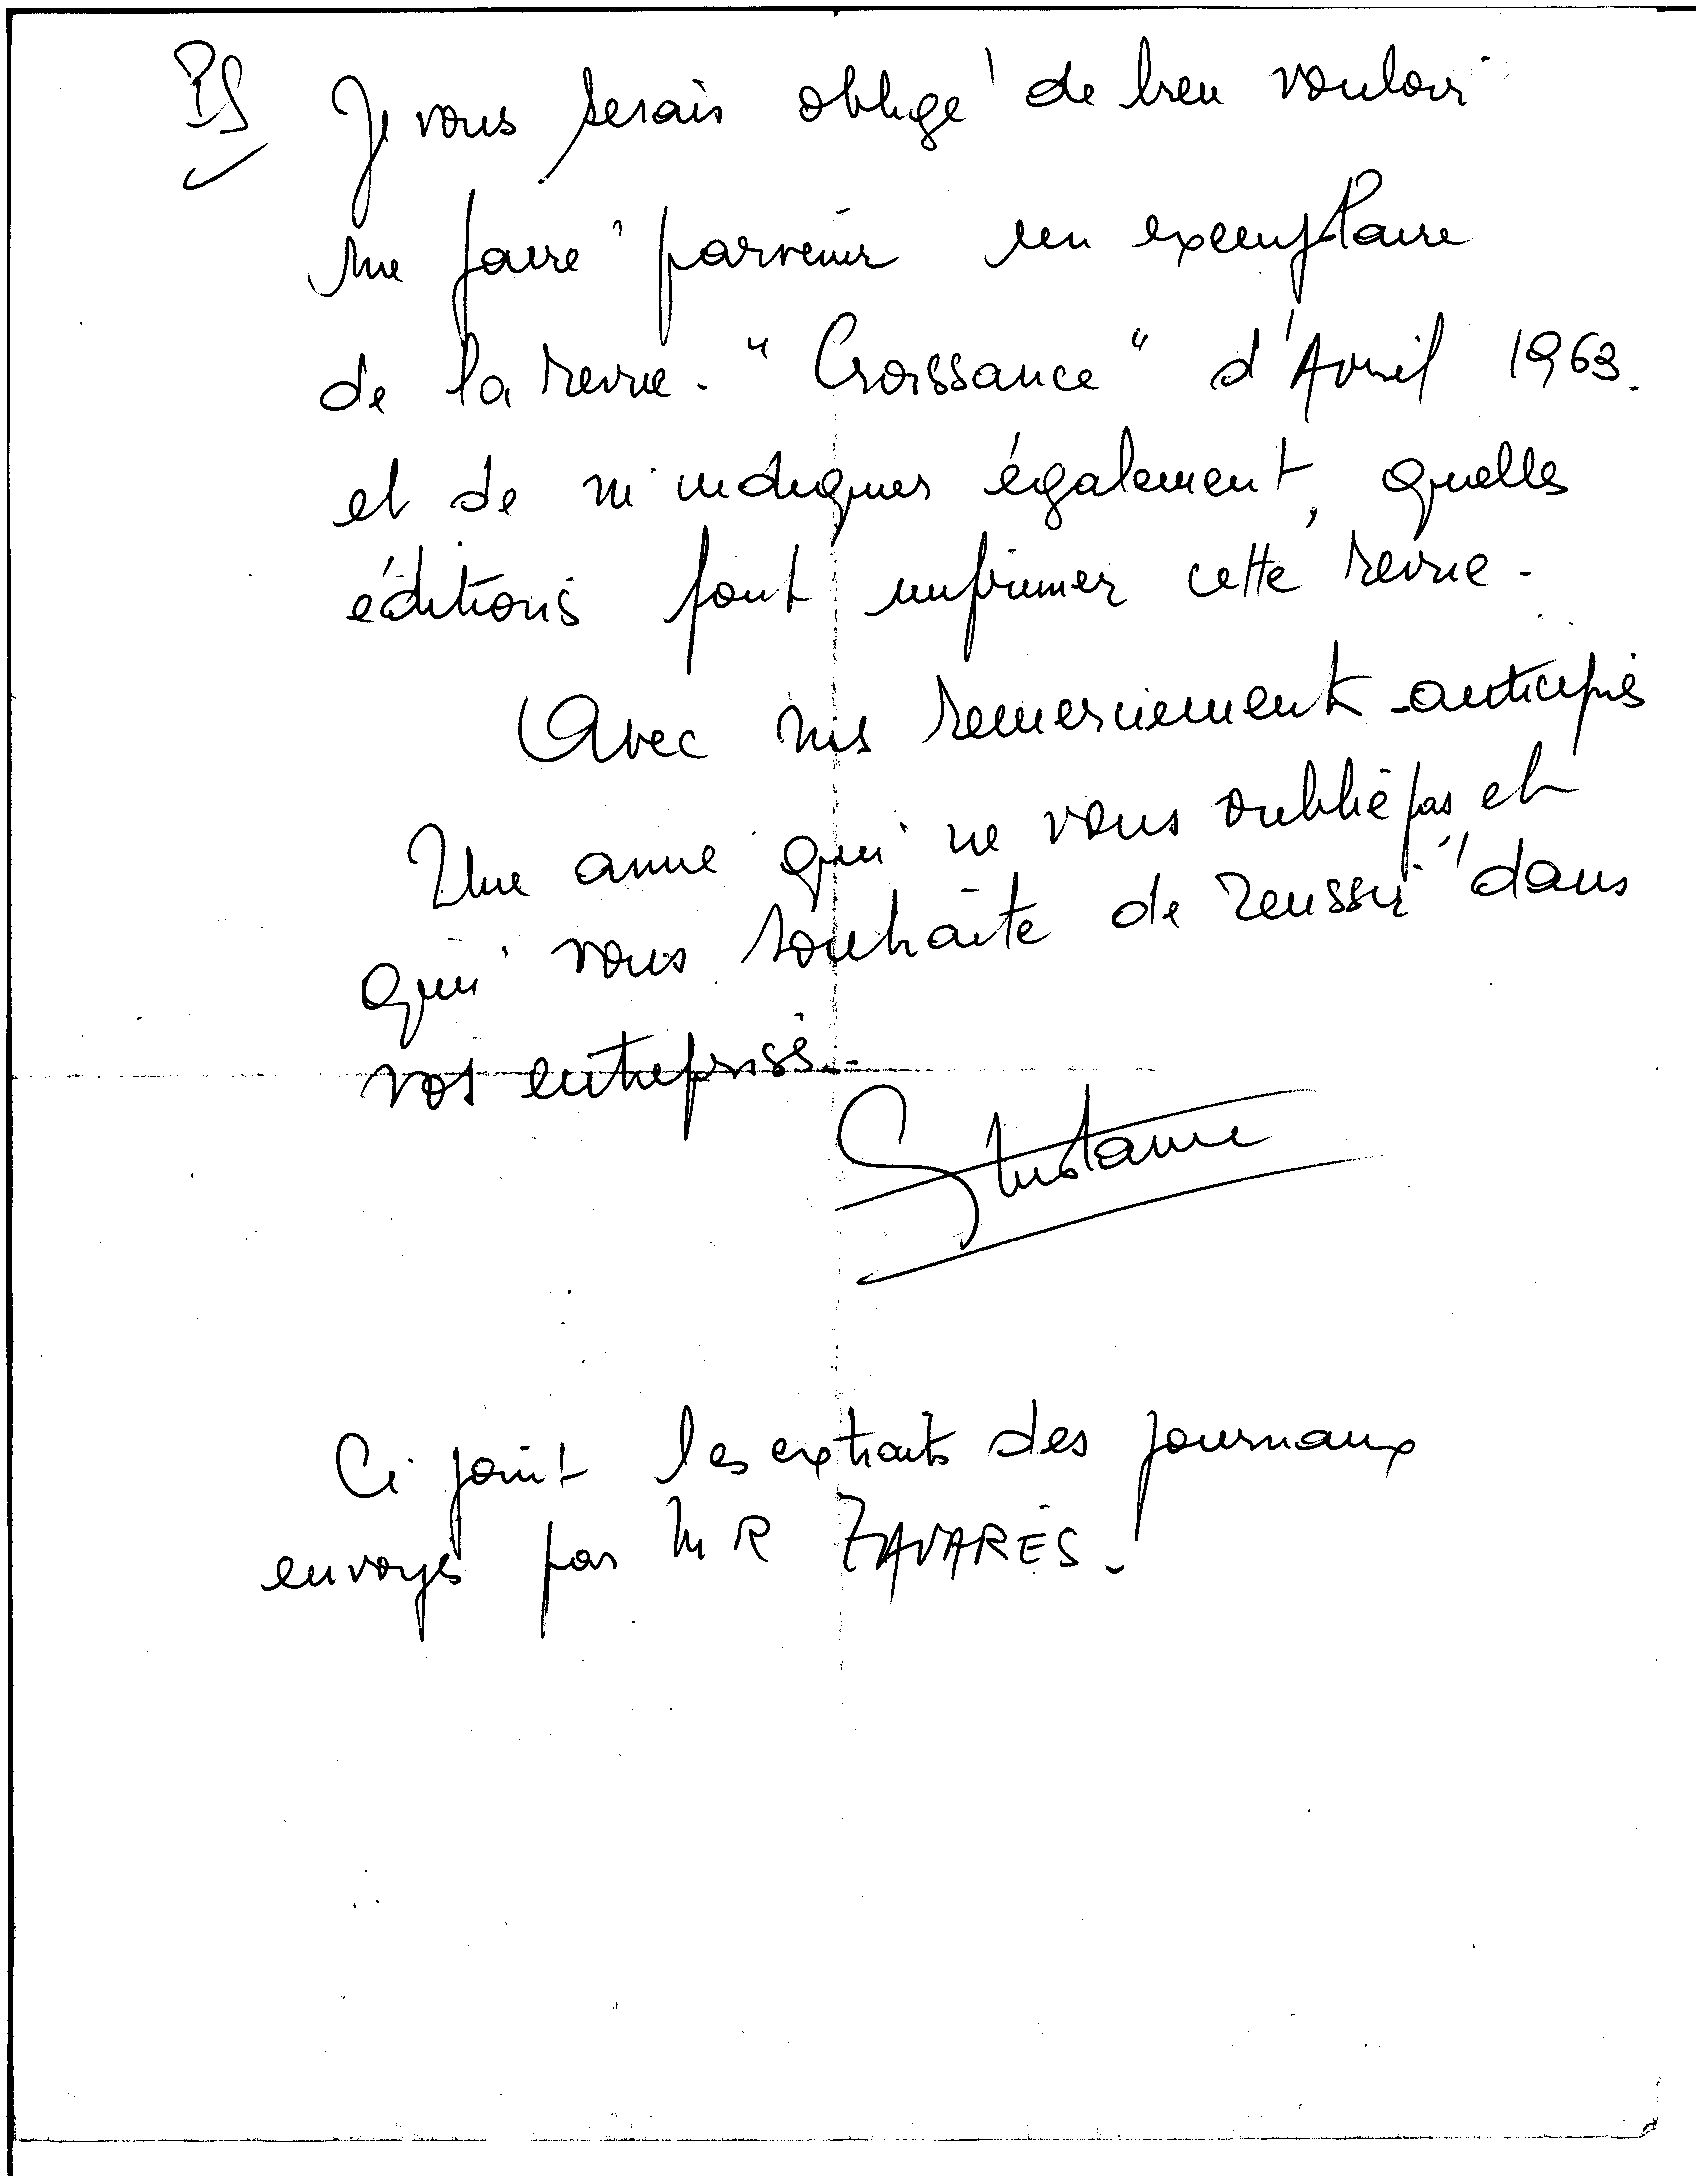 PS Je vous serais obligé de bien vouloir
me faire parvenir un exemplaire
de la revue. "Croissance" d'Avril 1963.
et de m'indiquer également, quelles
éditions font imprimer cette revue.
Avec mes remerciements anticipés
Une amie qui ne vous oublie pas et
qui vous souhaite de réussir dans
vos entreprises.
Ci joint les extraits des journaux
envoyés par MR TAVARÈS.